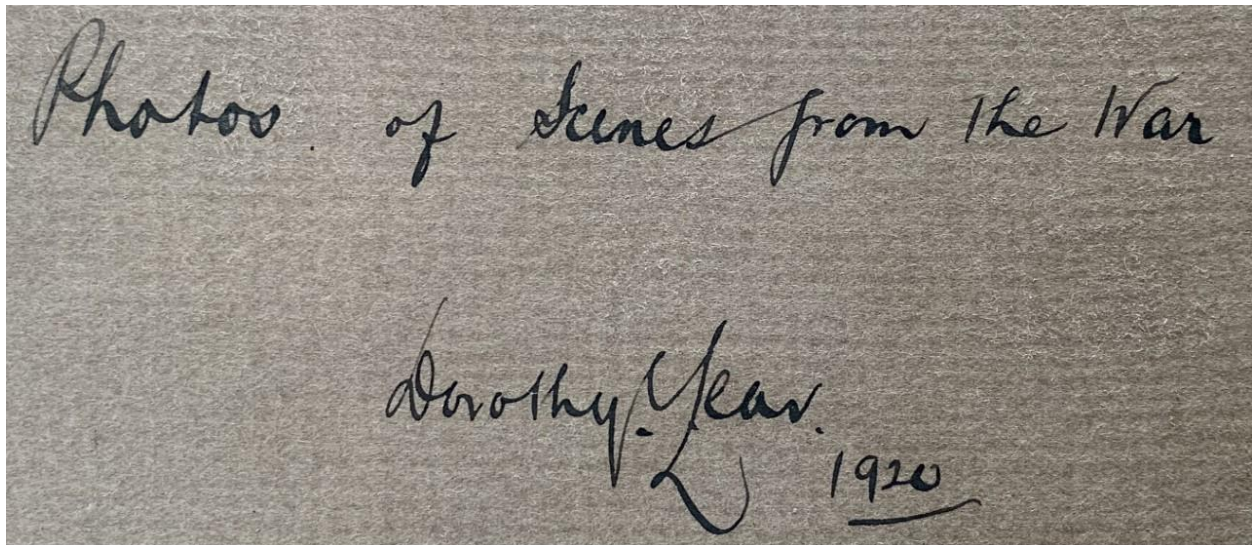 Photos. of Scenes from the War
Dorothy. Year.
1920